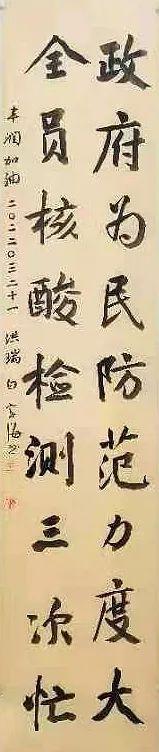 政府为民防范力度大
全员核酸检测三次忙
丰润加油二〇二二〇三二十一 洪瑞 白